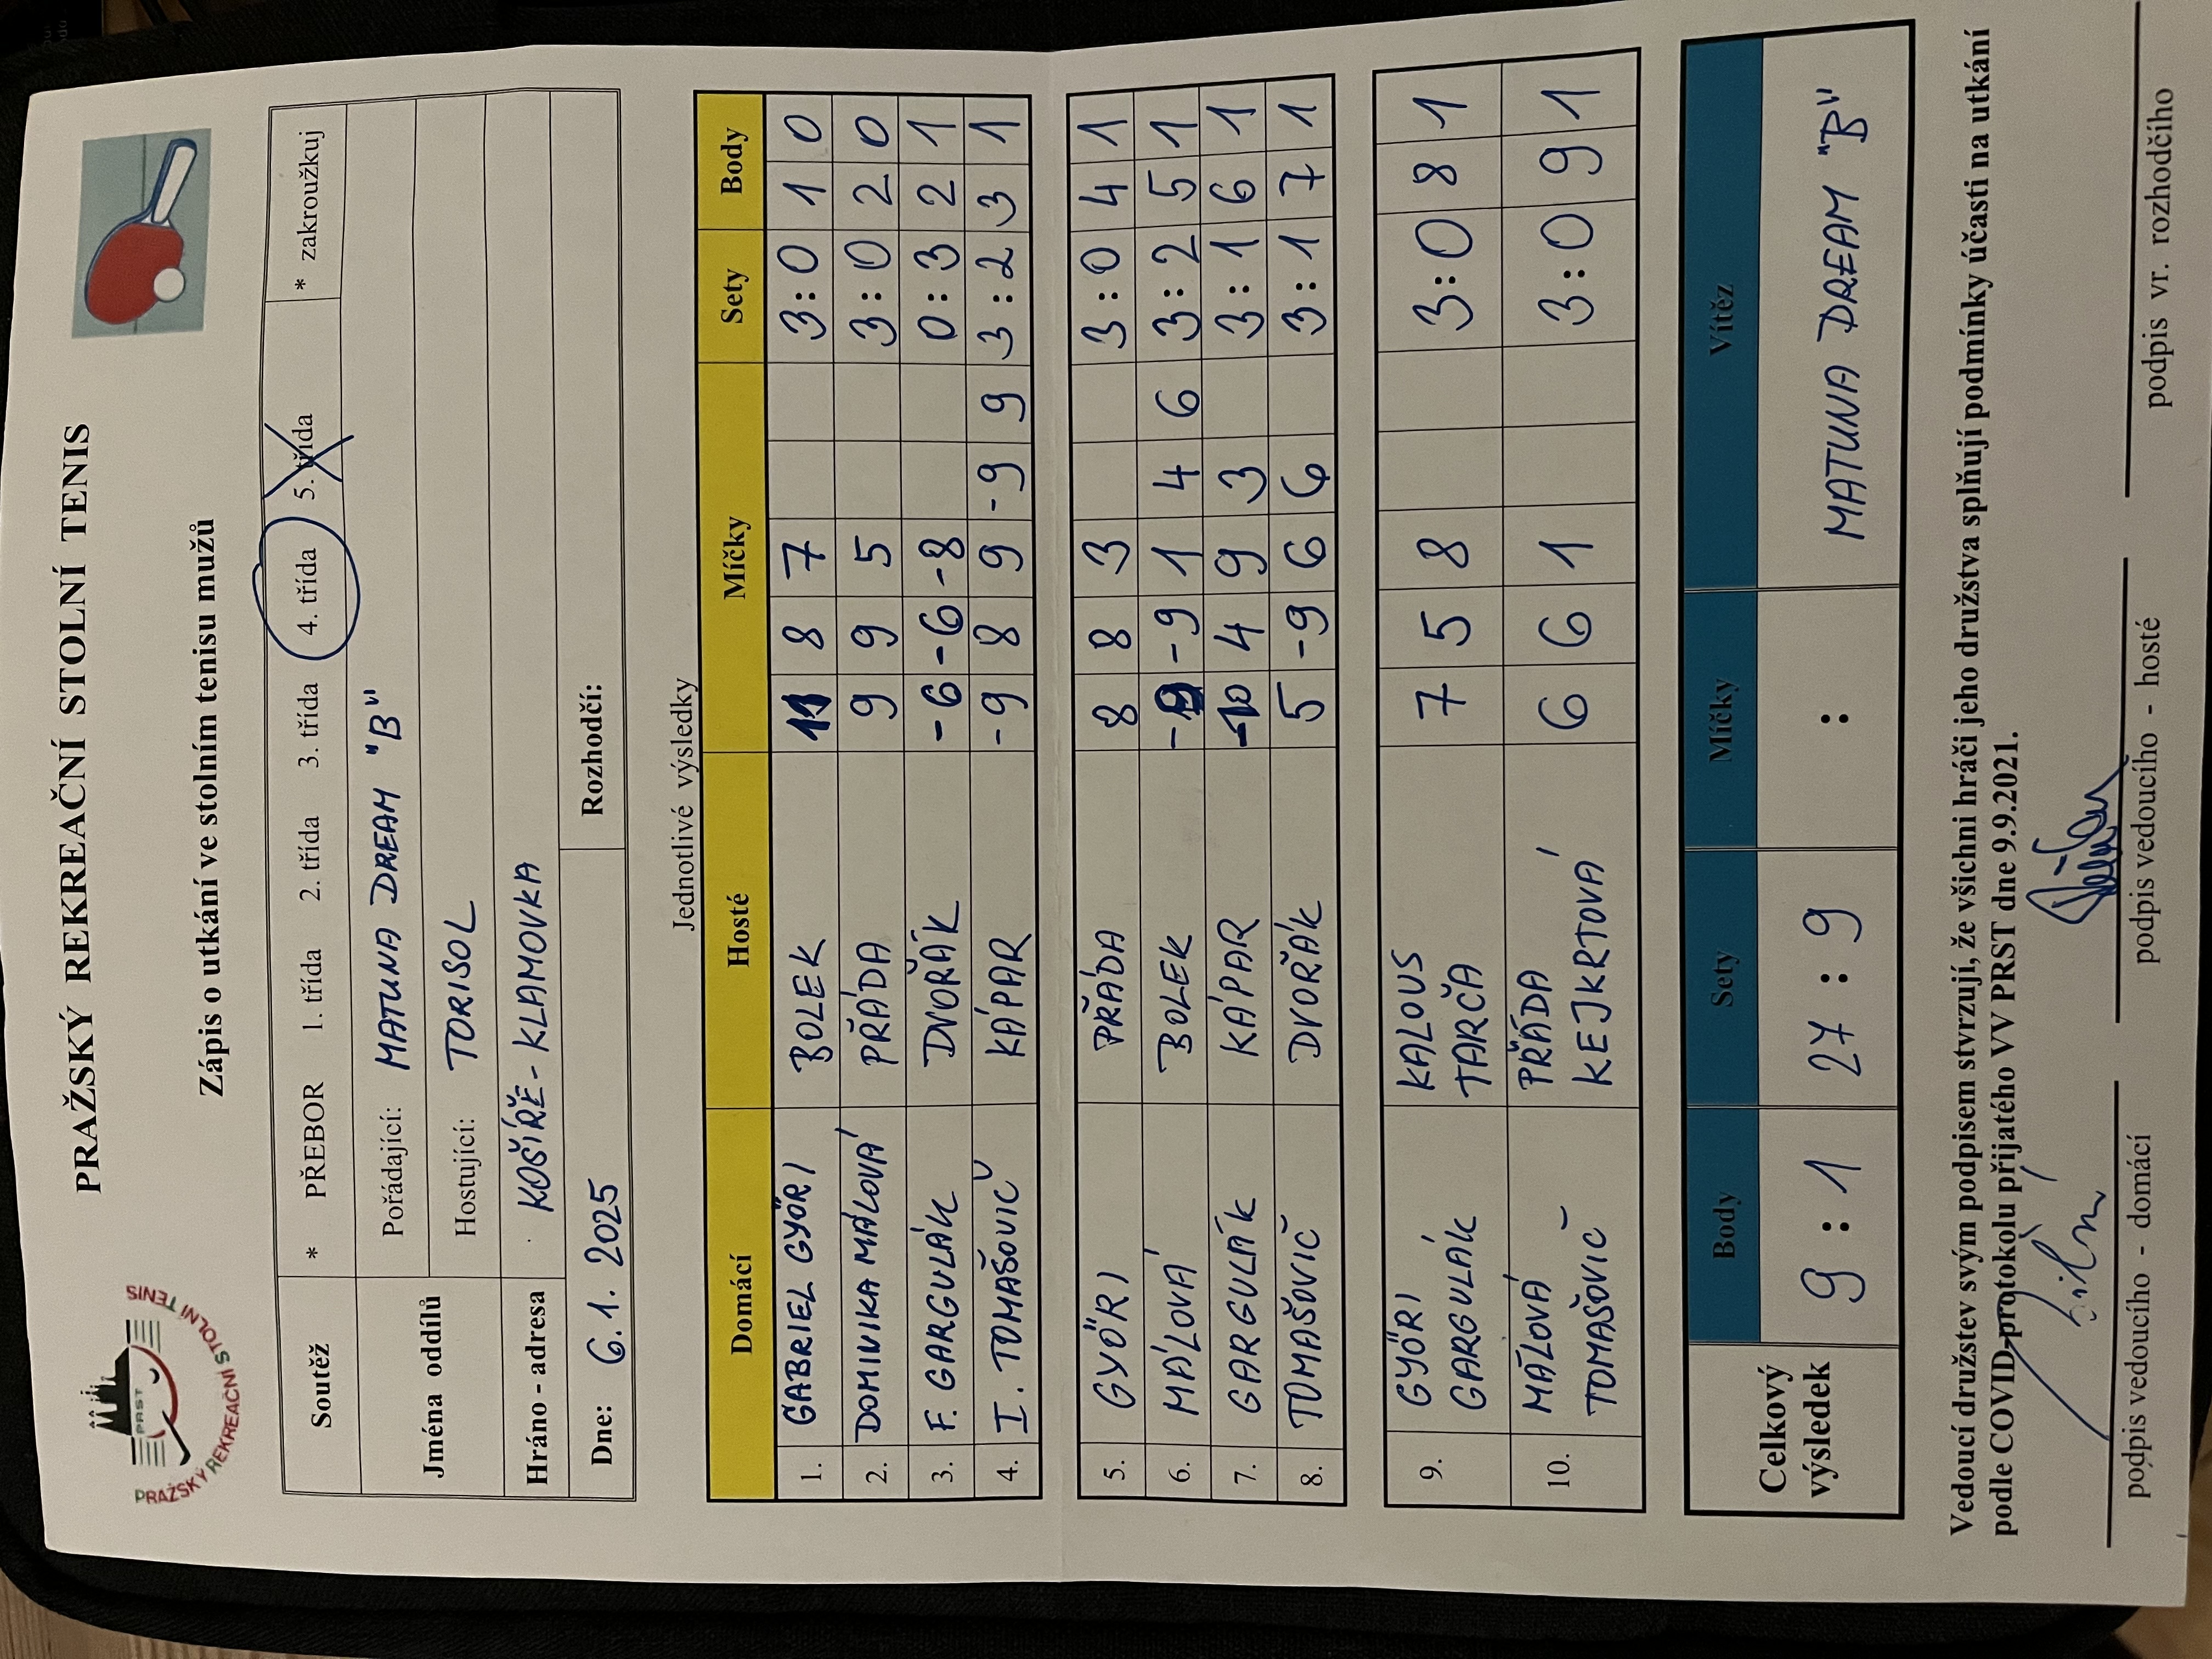 PRAŽSKÝ REKREAČNÍ STOLNÍ TENIS
PRST
PRAŽSKÝ REKREAČNÍ STOLNÍ TENIS
Zápis o utkání ve stolním tenisu mužů
Soutěž * PŘEBOR 1. třída 2. třída 3. třída 4. třída 5. třída * zakroužkuj
Jména oddílů Pořádající: MATUNA DREAM "B"
Hostující: TORISOL
Hráno - adresa KOŠÍŘE - KLAMOVKA
Dne: 6.1. 2025 Rozhodčí:
Jednotlivé výsledky
Domácí Hosté Míčky Sety Body
1. GABRIEL GYŐRI BOLEK 11 8 7 3:0 1 0
2. DOMINIKA MÁLOVÁ PŘÁDA 9 9 5 3:0 2 0
3. F. GARGULÁK DVOŘÁK -6 -6 -8 0:3 2 1
4. I. TOMAŠOVIČ KÁPAR -9 8 9 -9 9 3:2 3 1
5. GYŐRI PŘÁDA 8 8 3 3:0 4 1
6. MÁLOVÁ BOLEK -9 -9 1 4 6 3:2 5 1
7. GARGULÁK KÁPAR -10 4 9 3 3:1 6 1
8. TOMAŠOVIČ DVOŘÁK 5 -9 6 6 3:1 7 1
9. GYŐRI KALOUS 7 5 8 3:0 8 1
GARGULÁK TARČA
10. MÁLOVÁ PŘÁDA 6 6 1 3:0 9 1
TOMAŠOVIČ KEJKRTOVÁ
Celkový výsledek Body Sety Míčky Vítěz
9 : 1 27 : 9 : MATUNA DREAM "B"
Vedoucí družstev svým podpisem stvrzují, že všichni hráči jeho družstva splňují podmínky účasti na utkání
podle COVID-protokolu přijatého VV PRST dne 9.9.2021.
podpis vedoucího - domácí podpis vedoucího - hosté podpis vr. rozhodčího